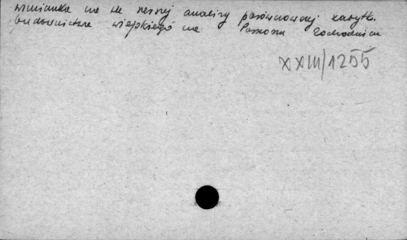 wzmianka na tle szerszej analizy porównawczej zabytk.
budownictwa wiejskiego na Pomorzu Zachodnim
XXIII/1255